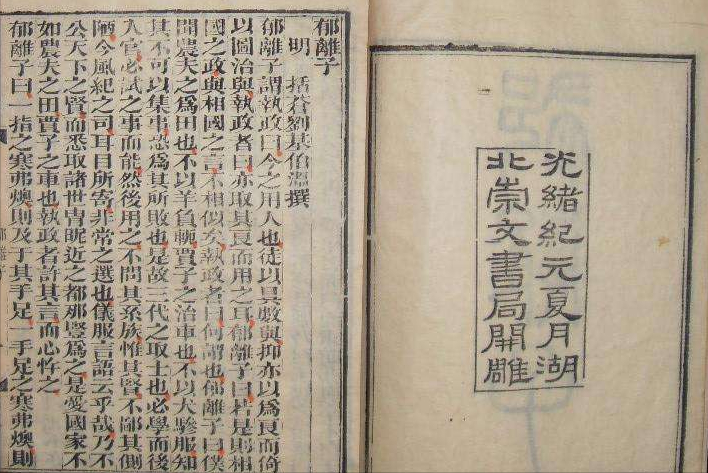 光緒紀元夏月湖
北崇文書局開雕
郁離子
明 括蒼劉基伯溫撰
郁離子謂執政曰今之用人也徒以具數與抑亦以爲良而倚
以圖治與執政者曰亦取其良而用之耳郁離子曰若是則相
國之政與相國之言不相似矣執政者曰何謂也郁離子曰僕
聞農夫之爲田也不以羊負軛賈子之治車也不以犬驂服知
其不可以集事恐爲其所敗也是故三代之取士也必學而後
入官必試之事而能然後用之不問其系族惟其賢不鄙其側
陋今風紀之司耳目所寄非常之選也儀服言語云乎哉乃不
公天下之賢而悉取諸世冑昵近之都那豎爲之是愛國家不
如農夫之田賈子之車也執政者許其言而心忤之
郁離子曰一指之寒弗燠則及于其手足一手足之寒弗燠則